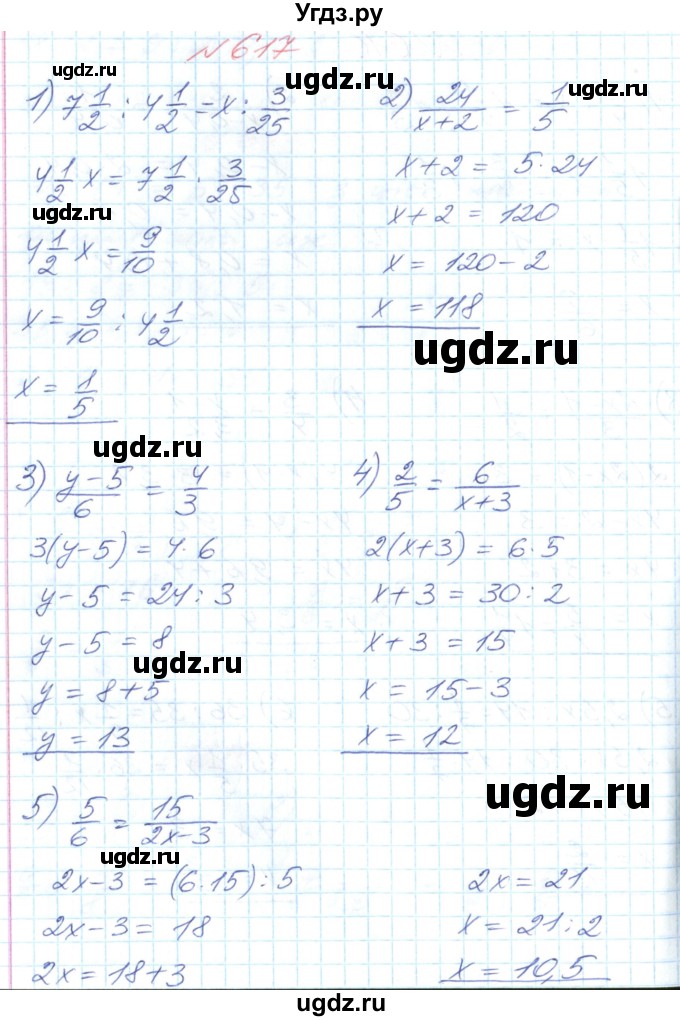 Угдз.ру
№617
ugdz.ru
ugdz.ru
ugdz.ru
1) 7 1/2 : 4 1/2 = x : 3/25
4 1/2 x = 7 1/2 · 3/25
ugdz.ru
4 1/2 x = 9/10
x = 9/10 : 4 1/2
x = 1/5
2) 24/(x+2) = 1/5
x+2 = 5·24
x+2 = 120
x = 120-2
x = 118
ugdz.ru
ugdz.ru
ugdz.ru
3) (y-5)/6 = 4/3
3(y-5) = 4·6
y-5 = 24:3
y-5 = 8
ugdz.ru
y = 8+5
y = 13
4) 2/5 = 6/(x+3)
2(x+3) = 6·5
x+3 = 30:2
x+3 = 15
x = 15-3
x = 12
ugdz.ru
5) 5/6 = 15/(2x-3)
ugdz.ru
2x-3 = (6·15):5
2x-3 = 18
2x = 18+3
2x = 21
x = 21:2
x = 10,5
ugdz.ru